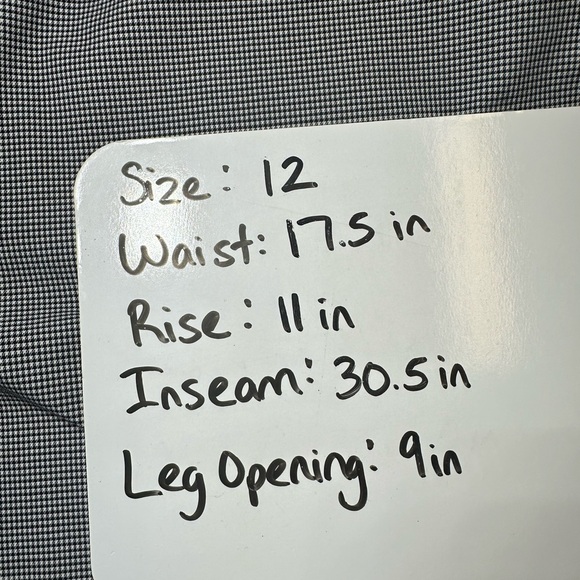 Size: 12
Waist: 17.5 in
Rise: 11 in
Inseam: 30.5 in
Leg Opening: 9in